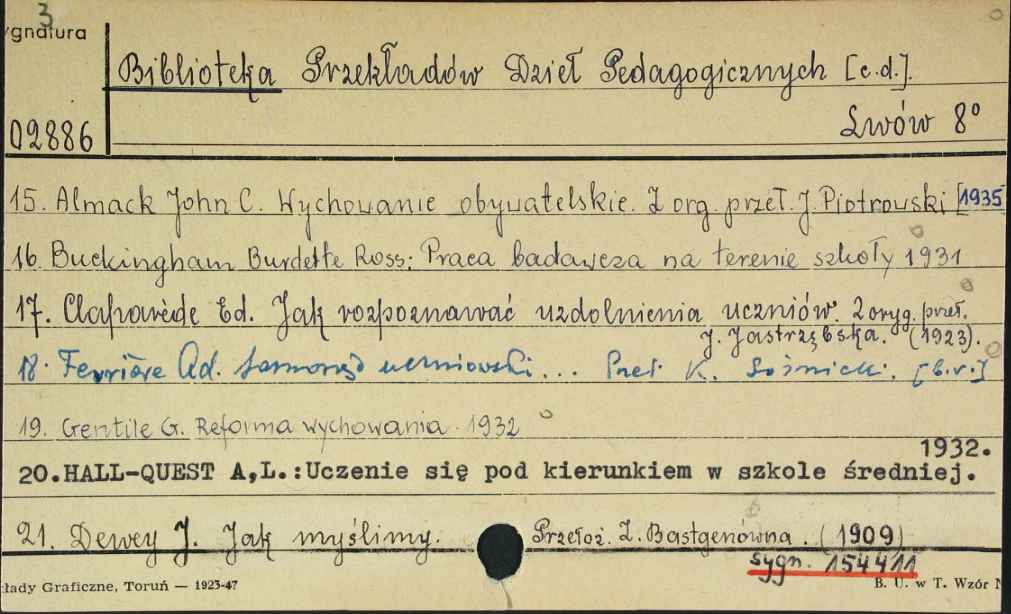 3
ygnatura
Biblioteka Przekładów Dzieł Pedagogicznych [c.d.].
02886
Lwów 8°
15. Almack John C. Wychowanie obywatelskie. Z org. przeł. J. Piotrowski [1935
16. Buckingham Burdette Ross: Praca badawcza na terenie szkoły 1931
17. Claparède Ed. Jak rozpoznawać uzdolnienia uczniów. Z oryg. przeł.
J. Jastrzębska. (1923).
18. Ferrière Ad. Samorząd uczniowski... Przeł. K. Sośnicki. [b.r.]
19. Gentile G. Reforma wychowania. 1932
1932.
20.HALL-QUEST A,L.:Uczenie się pod kierunkiem w szkole średniej.
21. Dewey J. Jak myślimy. Przełoż. Z. Bastgenówna. (1909)
sygn. 154411
łady Graficzne, Toruń — 1923-47
B. U. w T. Wzór N